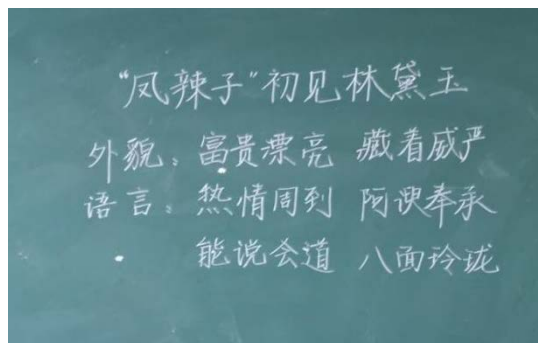 “凤辣子”初见林黛玉
外貌：富贵漂亮 藏着威严
语言：热情周到 阿谀奉承
能说会道 八面玲珑